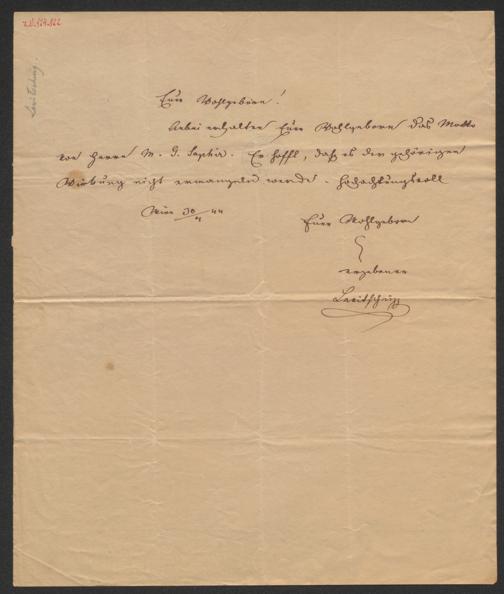 Euer Wohlgeboren!
Anbei erhalten Euer Wohlgeboren das Motto
von Herrn M. G. Saphir. Er hofft, daß es der gehörigen
Wirkung nicht ermangeln werde. Hochachtungsvoll
Wien 30/4 44
Euer Wohlgeboren
ergebener
Levitschnigg